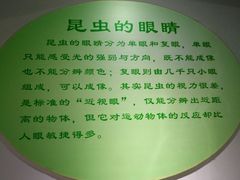 昆虫的眼睛
昆虫的眼睛分为单眼和复眼，单眼
只能感受光的强弱与方向，既不能成像
也不能分辨颜色；复眼则由几千只小眼
组成，可以成像。其实昆虫的视力很差，
是标准的“近视眼”，仅能分辨出近距
离的物体，但它对运动物体的反应却比
人眼敏捷得多。